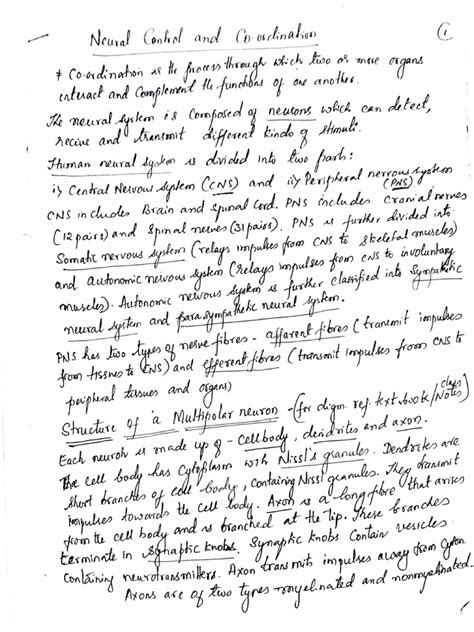 Neural Control and Co-ordination
1
* Co-ordination is the process through which two or more organs
interact and complement the functions of one another.
The neural system is composed of neurons which can detect,
recive and transmit different kinds of stimuli.
Human neural system is divided into two parts:
i) Central Nervous system (CNS) and ii) Peripheral nervous system (PNS)
CNS includes Brain and Spinal Cord. PNS includes cranial nerves
(12 pairs) and spinal nerves (31 pairs). PNS is further divided into
Somatic nervous system (relays impulses from CNS to skeletal muscles)
and autonomic nervous system (Relays impulses from CNS to involuntary
muscles). Autonomic nervous system is further classified into Sympathetic
neural system and parasympathetic neural system.
PNS has two types of nerve fibres - affarent fibres (transmit impulses
from tissues to CNS) and efferent fibres (transmit impulses from CNS to
peripheral tissues and organs)
Structure of a Multipolar neuron - (for digm. ref. text book/class Notes)
Each neuron is made up of - Cell body, dendrites and axon.
The cell body has Cytoplasm with Nissl's granules. Dendrites are
short branches of cell body, containing Nissl granules. They transmit
impulses towards the cell body. Axon is a long fibre, that arises
from the cell body and is branched at the tip. These branches
terminate in Synaptic knobs. Synaptic knobs contain vesicles
containing neurotransmitters. Axon transmits impulses away from
Axons are of two types - myelinated and nonmyelinated.